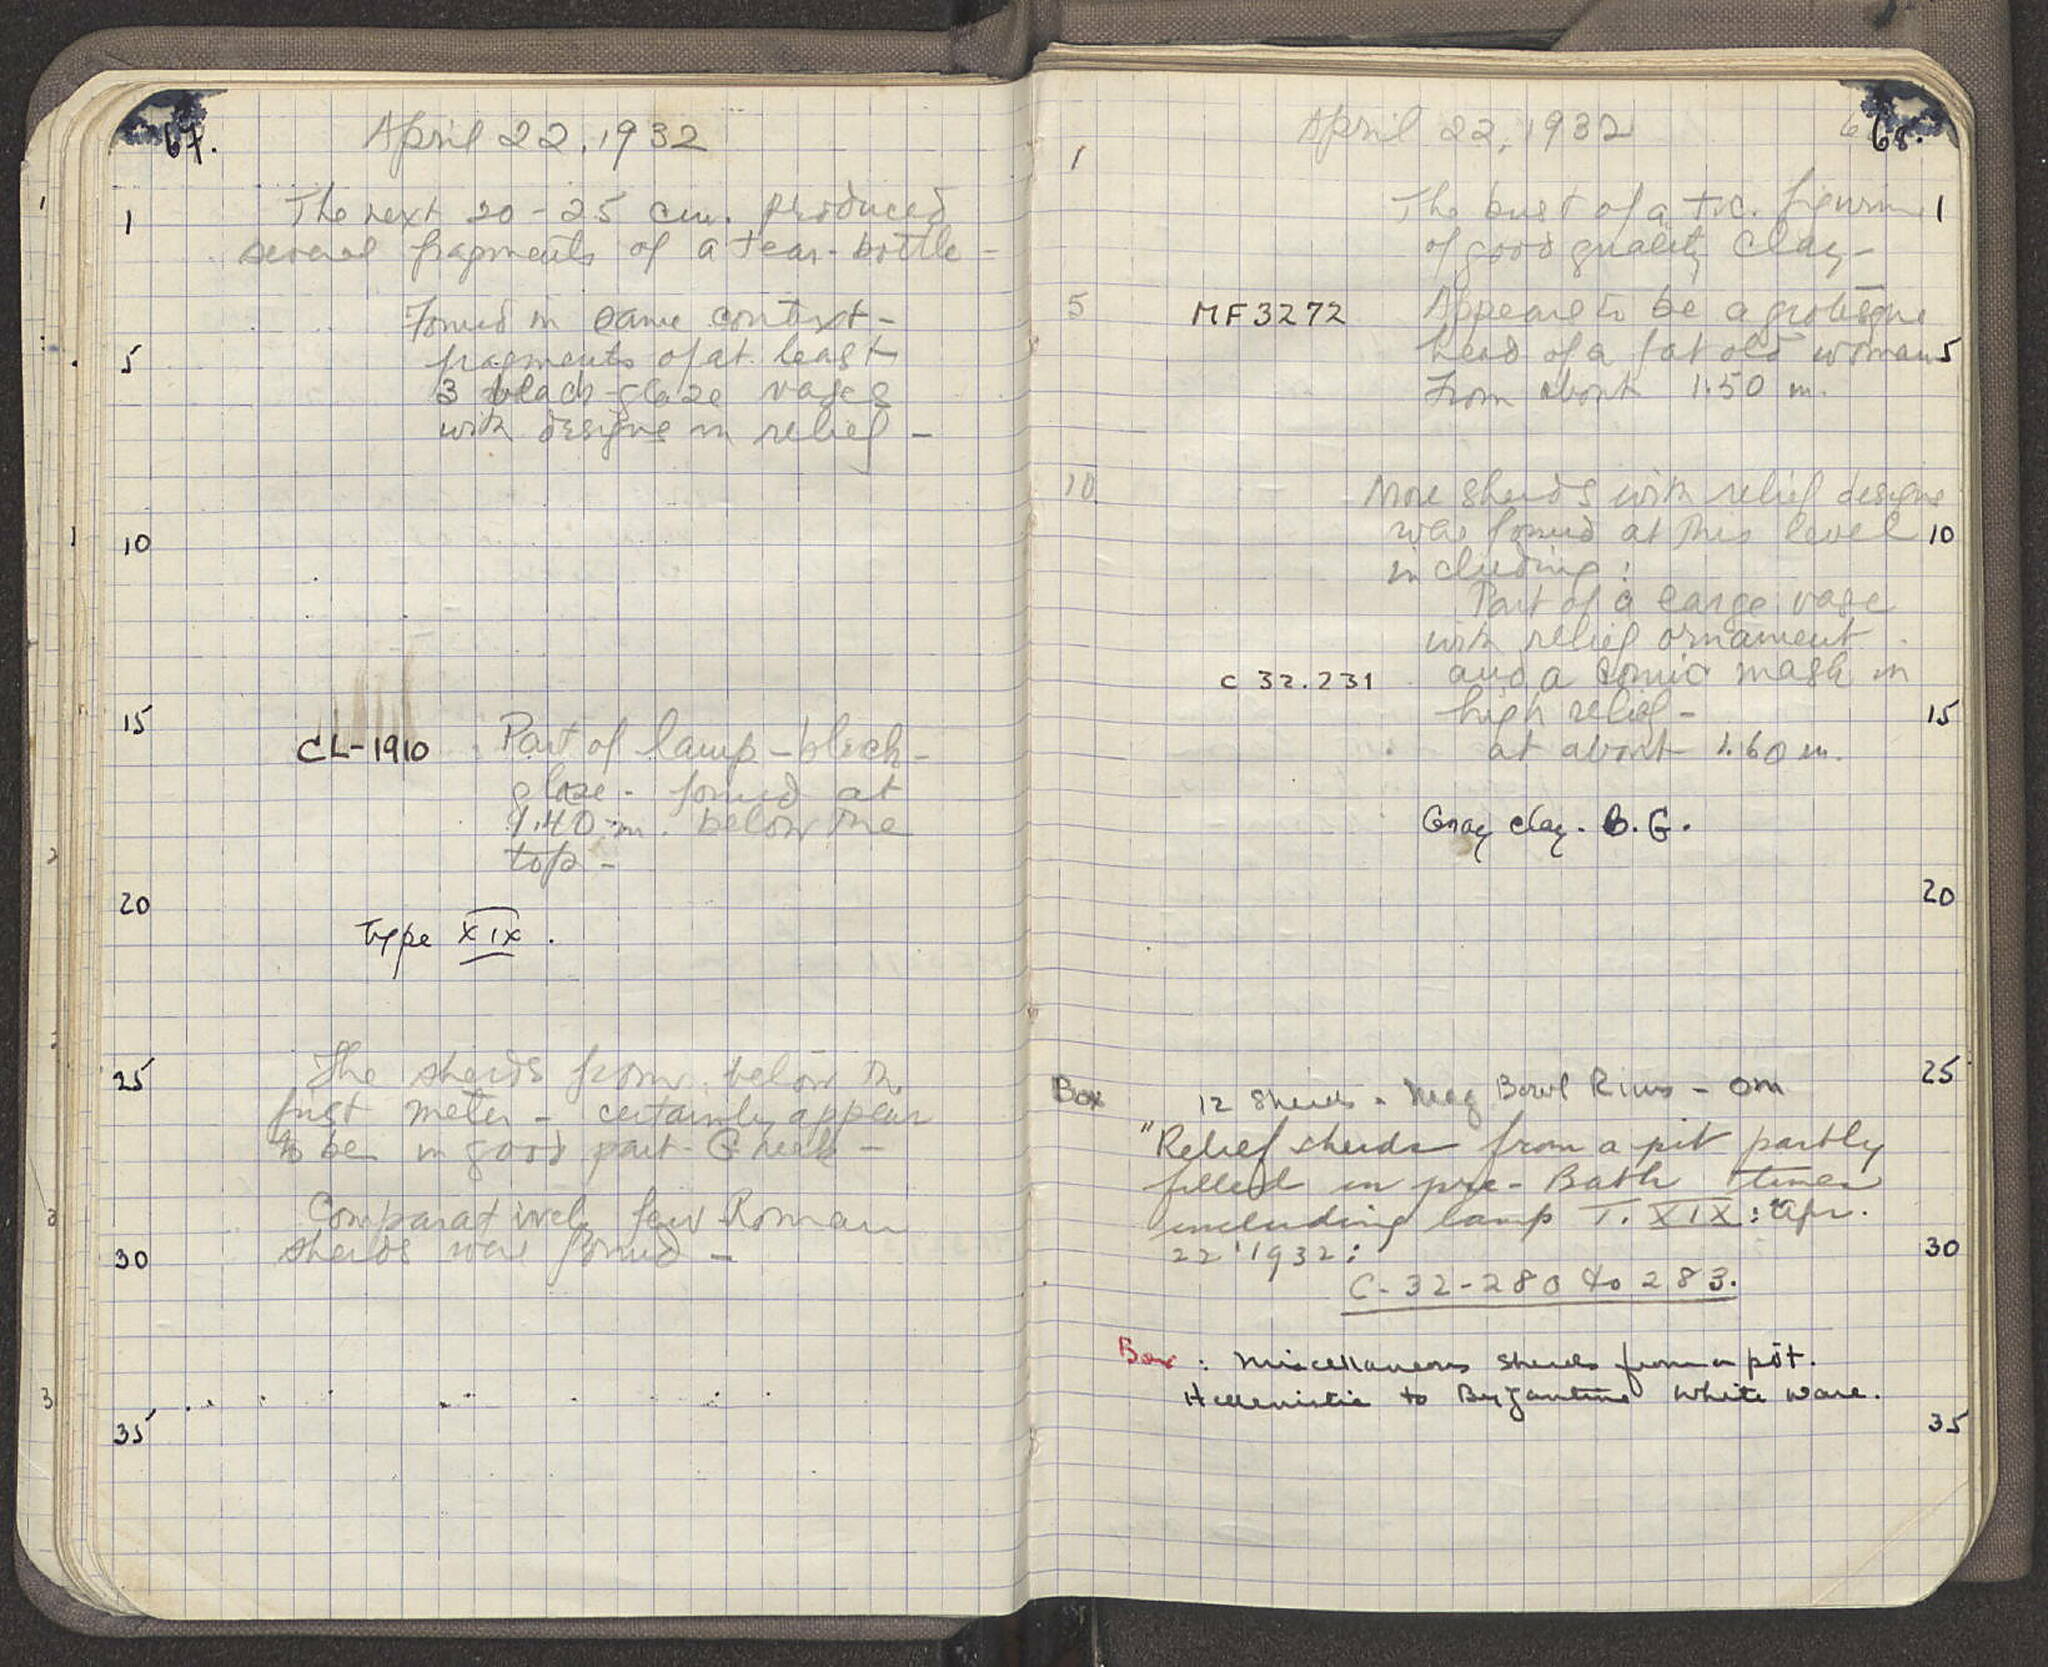 67.
April 22, 1932
1
The next 20-25 cm. produced
several fragments of a tear-bottle -
Found in same context -
5
fragments of at least
3 black-glaze vases
with designs in relief -
10
15
CL-1910
Part of lamp - black-
glaze - found at
1.40 m. below the
top -
20
Type XIX.
25
The sherds from below the
first meter - certainly appear
to be in good part Greek -
Comparatively few Roman
sherds were found -
30
35
April 22, 1932
68.
1
The bust of a t.c. figurine
1
of good quality clay -
5
MF 3272
Appears to be a grotesque
head of a fat old woman
5
From about 1.50 m.
10
More sherds with relief designs
was found at this level
10
including:
Part of a large vase
with relief ornament
C 32.231
and a comic mask in
high relief -
15
at about 1.60 m.
Gray clay. B.G.
20
25
Box
12 sherds - Meg Bowl Rims - om
"Relief sherds from a pit partly
filled in pre-Bath times
including lamp T. XIX: Apr.
22 1932:
30
C-32-280 to 283.
Box: Miscellaneous sherds from a pit.
Hellenistic to Byzantine white ware.
35